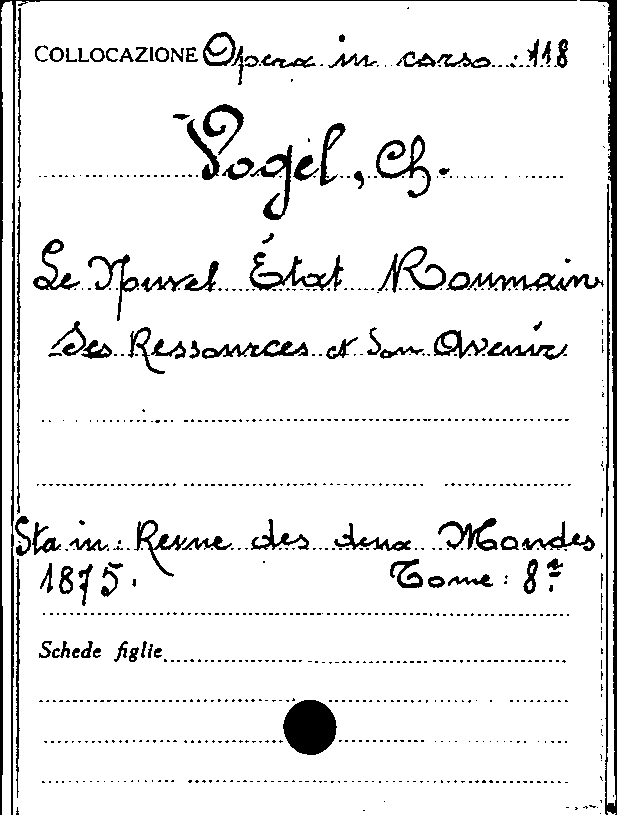 COLLOCAZIONE Opera in corso : 118
Vogel, Ch.
Le Nouvel État Roumain
Ses Ressources et Son Avenir
Sta in: Revue des deux Mondes
1875. Tome: 8º
Schede figlie